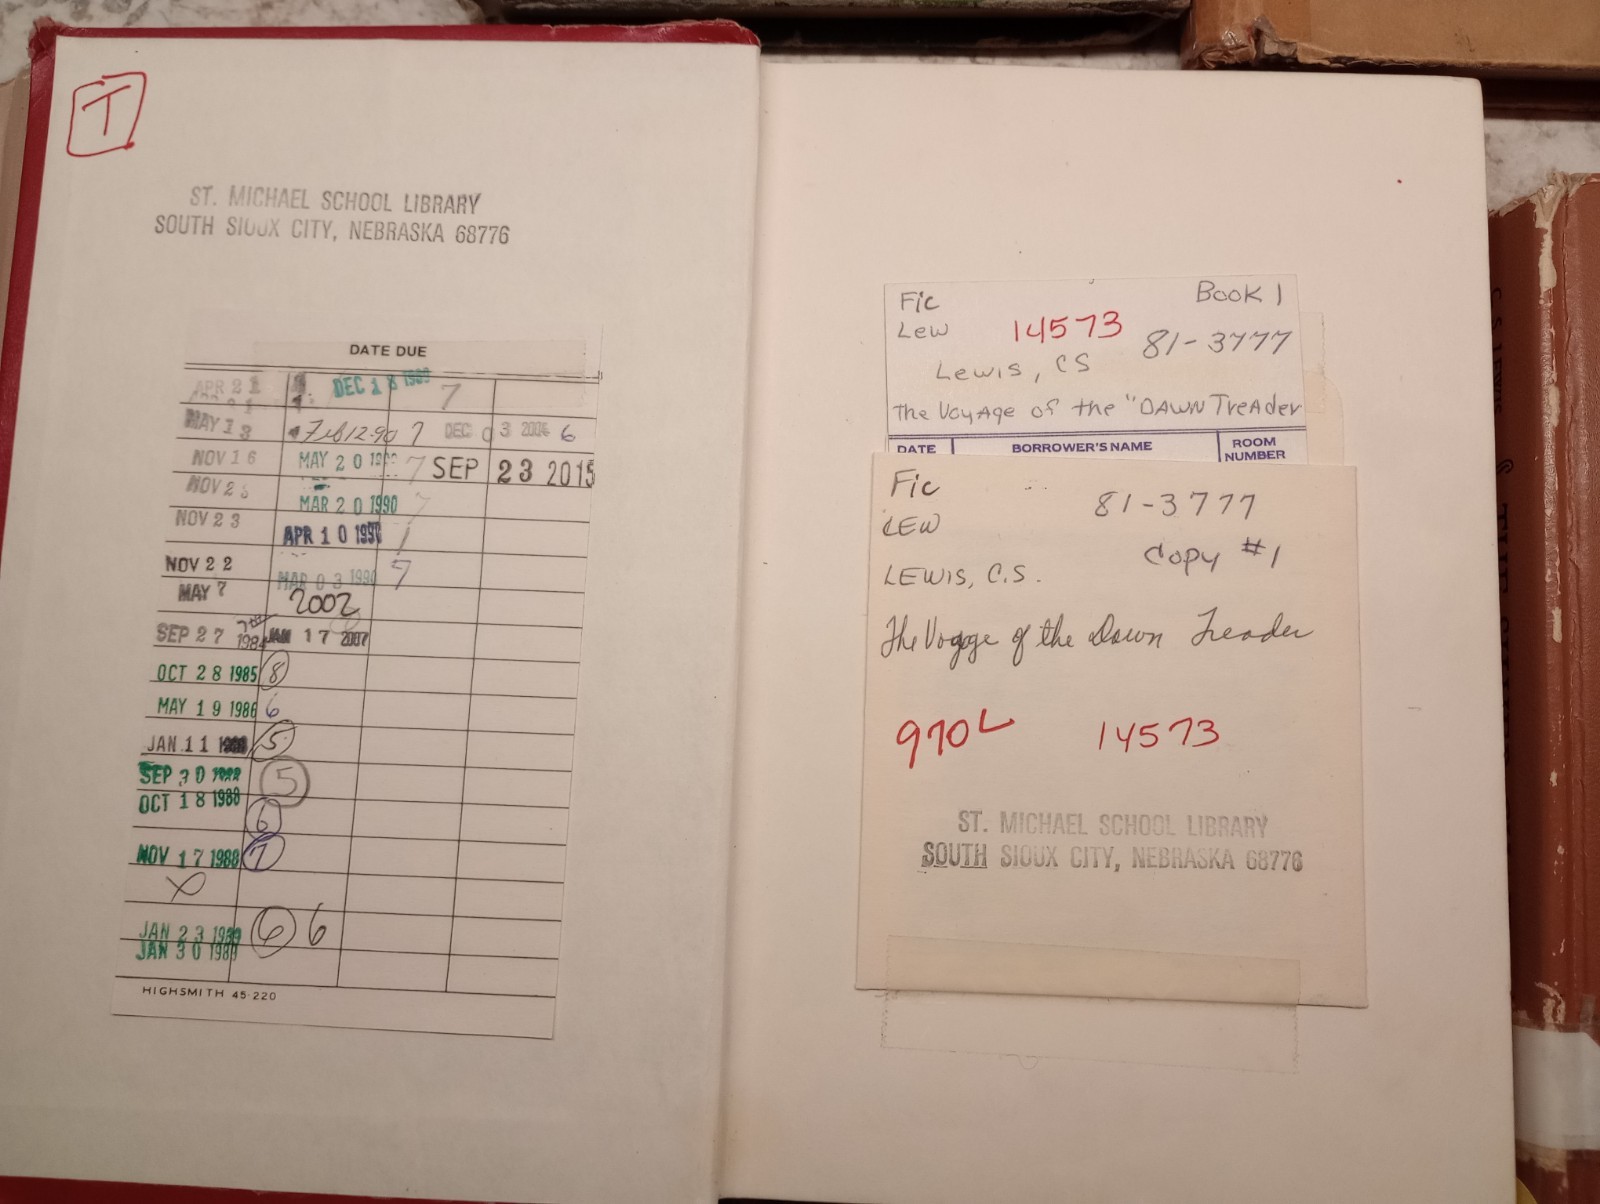 T
ST. MICHAEL SCHOOL LIBRARY
SOUTH SIOUX CITY, NEBRASKA 68776
DATE DUE
APR 21 DEC 18 1989 7
MAY 13 Feb 12-90 7 DEC 03 2006 6
NOV 16 MAY 20 7 SEP 23 2015
NOV 2 MAR 20 1990 7
NOV 23 APR 10 1990
NOV 22 MAR 03 1990 7
MAY 7 2002
SEP 27 1984 JAN 17 2007
OCT 28 1985 8
MAY 19 1986 6
JAN 11 5
SEP 30 5
OCT 18 1988 6
NOV 17 1988 7
JAN 23 1989 6 6
JAN 30 1989
HIGHSMITH 45-220
Fic Book 1
Lew 14573 81-3777
Lewis, CS
The Voyage of the "DAWN Treader
DATE BORROWER'S NAME ROOM NUMBER
Fic 81-3777
LEW Copy #1
LEWIS, C.S.
The Voyage of the Dawn Treader
970L 14573
ST. MICHAEL SCHOOL LIBRARY
SOUTH SIOUX CITY, NEBRASKA 68776